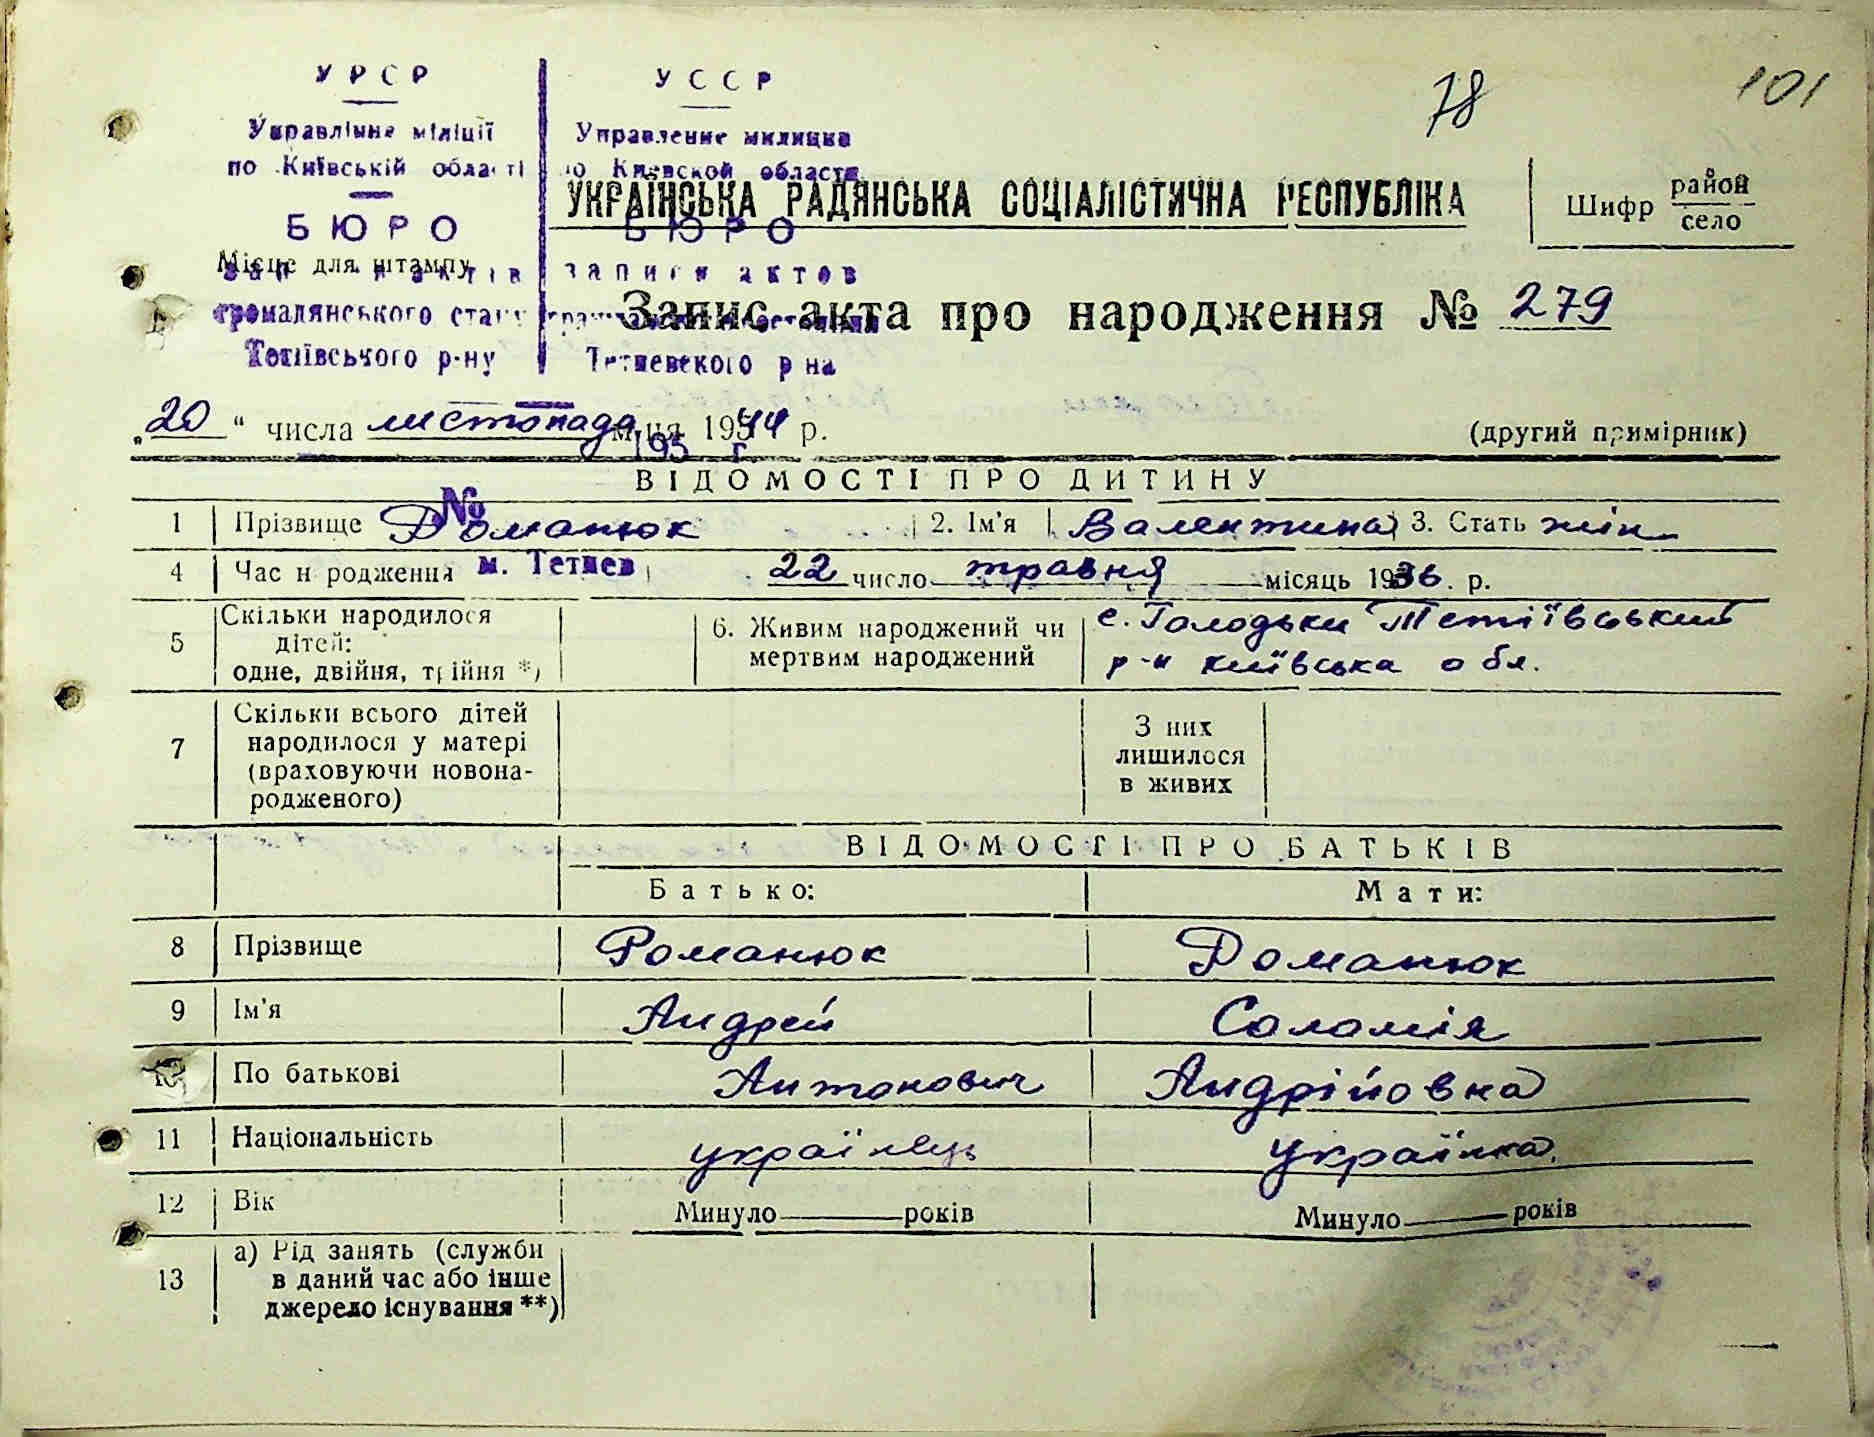 78
101
УРСР
УССР
Управління міліції
по Київській області
Управление милиции
по Киевской области
УКРАЇНСЬКА РАДЯНСЬКА СОЦІАЛІСТИЧНА РЕСПУБЛІКА
Шифр район
село
БЮРО
БЮРО
Місце для штампу
записи актов
громадянського стану
Запис акта про народження № 279
Тетіївського р-ну
Тетиевского р на
„20“ числа листопада м-ця 1944 р.
195 г.
(другий примірник)
ВІДОМОСТІ ПРО ДИТИНУ
№
1 Прізвище Романюк 2. Ім'я Валентина 3. Стать жін
4 Час народження м. Тетиев 22 число травня місяць 1936 р.
5 Скільки народилося
дітей:
одне, двійня, трійня *)
6. Живим народжений чи
мертвим народжений
с. Голодьки Тетіївський
р-н Київська обл.
7 Скільки всього дітей
народилося у матері
(враховуючи новона-
родженого)
З них
лишилося
в живих
ВІДОМОСТІ ПРО БАТЬКІВ
Батько: Мати:
8 Прізвище Романюк Романюк
9 Ім'я Андрей Соломія
10 По батькові Антонович Андрійовна
11 Національність українець Українка
12 Вік Минуло років Минуло років
13 а) Рід занять (служби
в даний час або інше
джерело існування **)